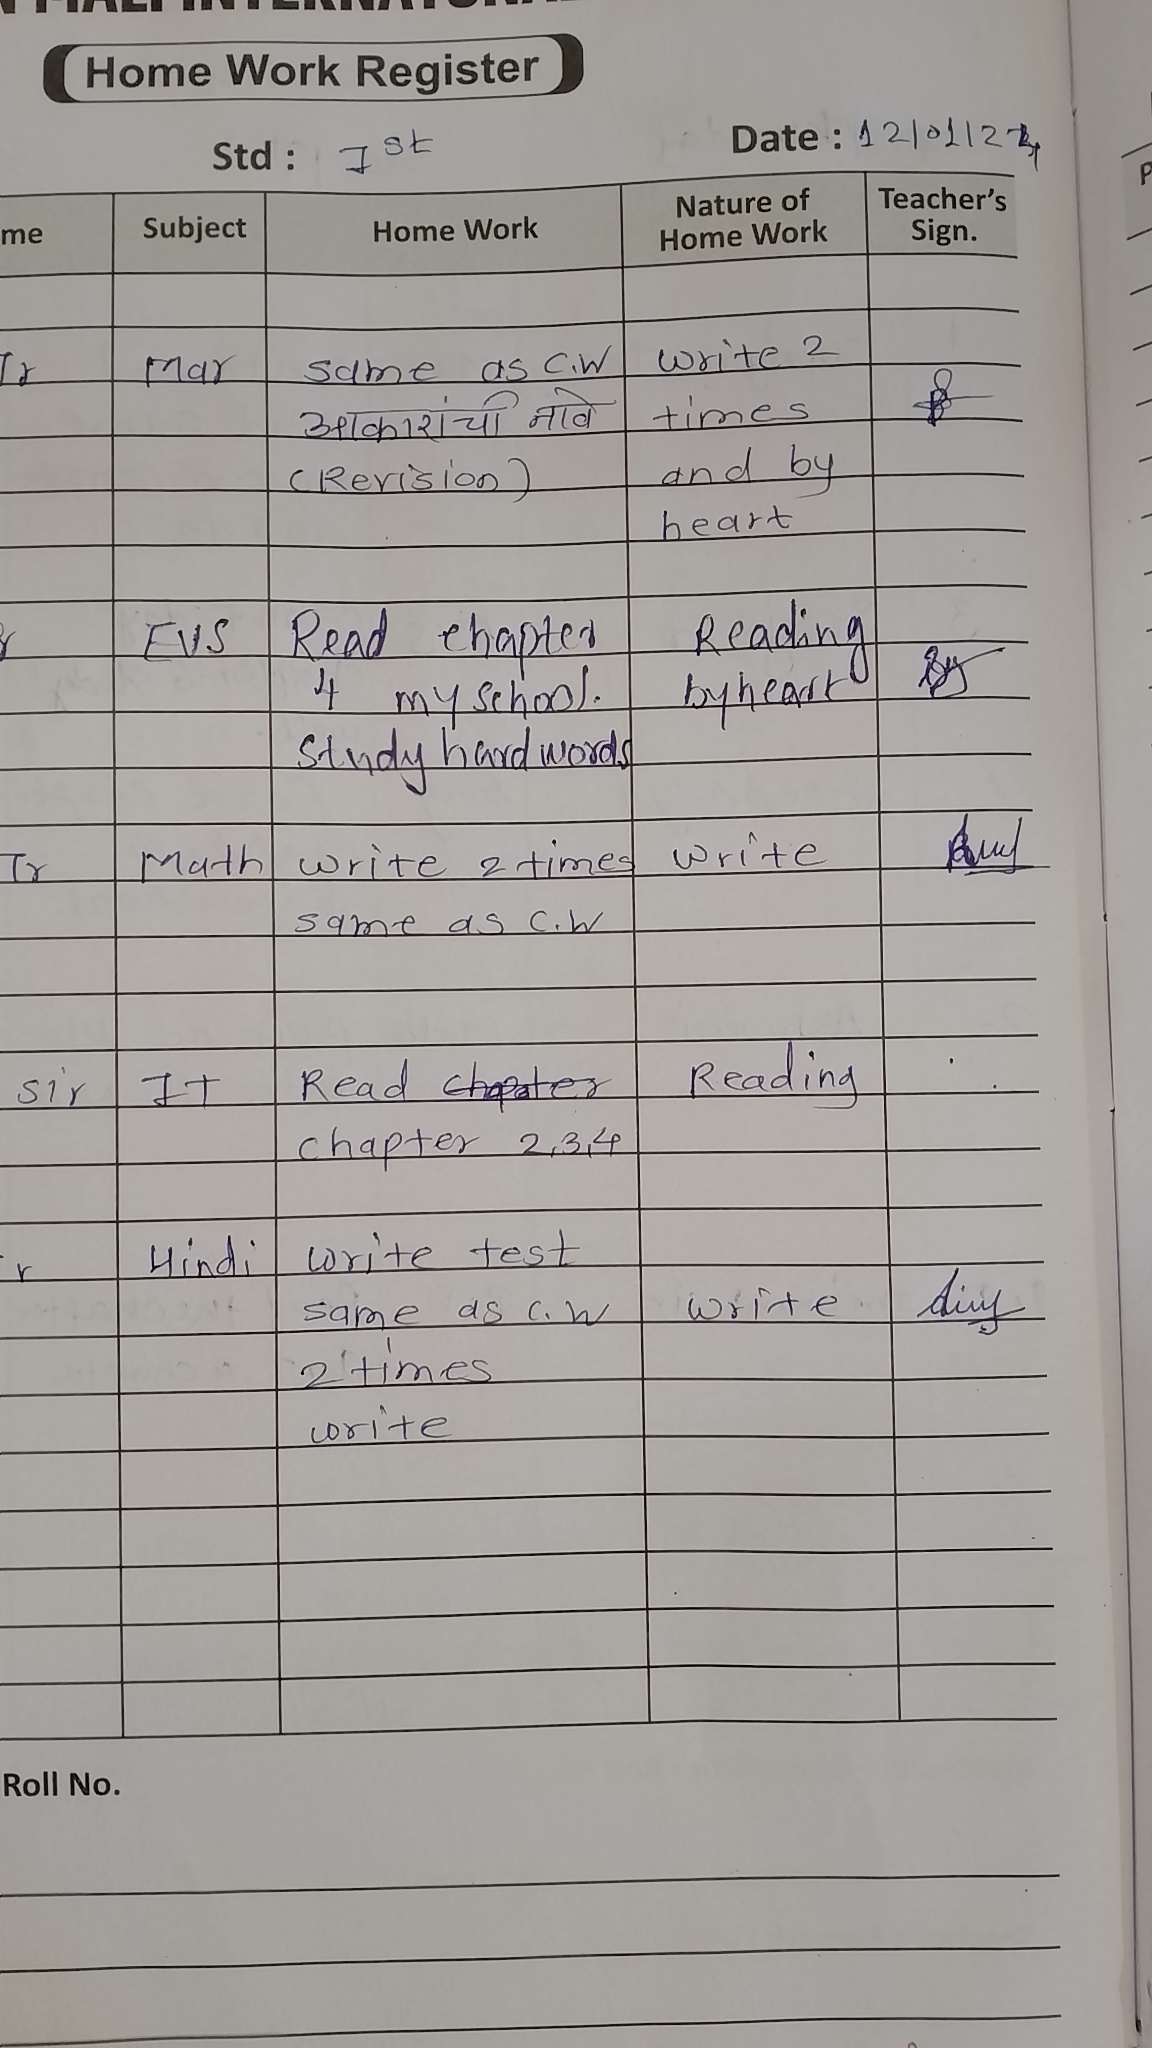 Home Work Register
Std : Ist Date : 12/01/24
me Subject Home Work Nature of Home Work Teacher's Sign.
Tr Mar same as C.W Write 2
आकारांची नावे times
(Revision) and by
heart
EVS Read chapter Reading
4 my school. byheart
Study hard words
Tr Math write 2 times write
same as C.W
sir IT Read chapter Reading
chapter 2,3,4
r Hindi write test
same as C.W write
2 times
write
Roll No.